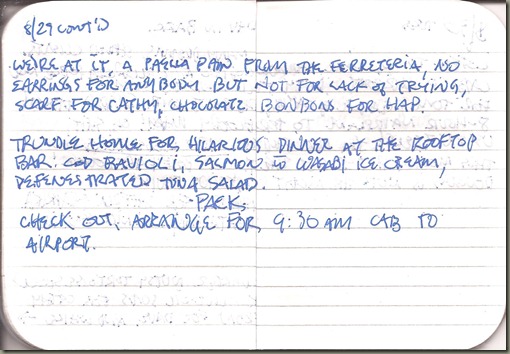 8/29 CONT'D
WE'RE AT IT, A PAELLA PAN FROM THE FERRETERIA, NO
EARRINGS FOR ANYBODY BUT NOT FOR LACK OF TRYING,
SCARF FOR CATHY, CHOCOLATE BONBONS FOR HAP.
TRUNDLE HOME FOR HILARIOUS DINNER AT THE ROOFTOP
BAR. COD RAVIOLI, SALMON W WASABI ICE CREAM,
DEFENESTRATED TUNA SALAD.
PACK,
CHECK OUT, ARRANGE FOR 9:30 AM CAB TO
AIRPORT.